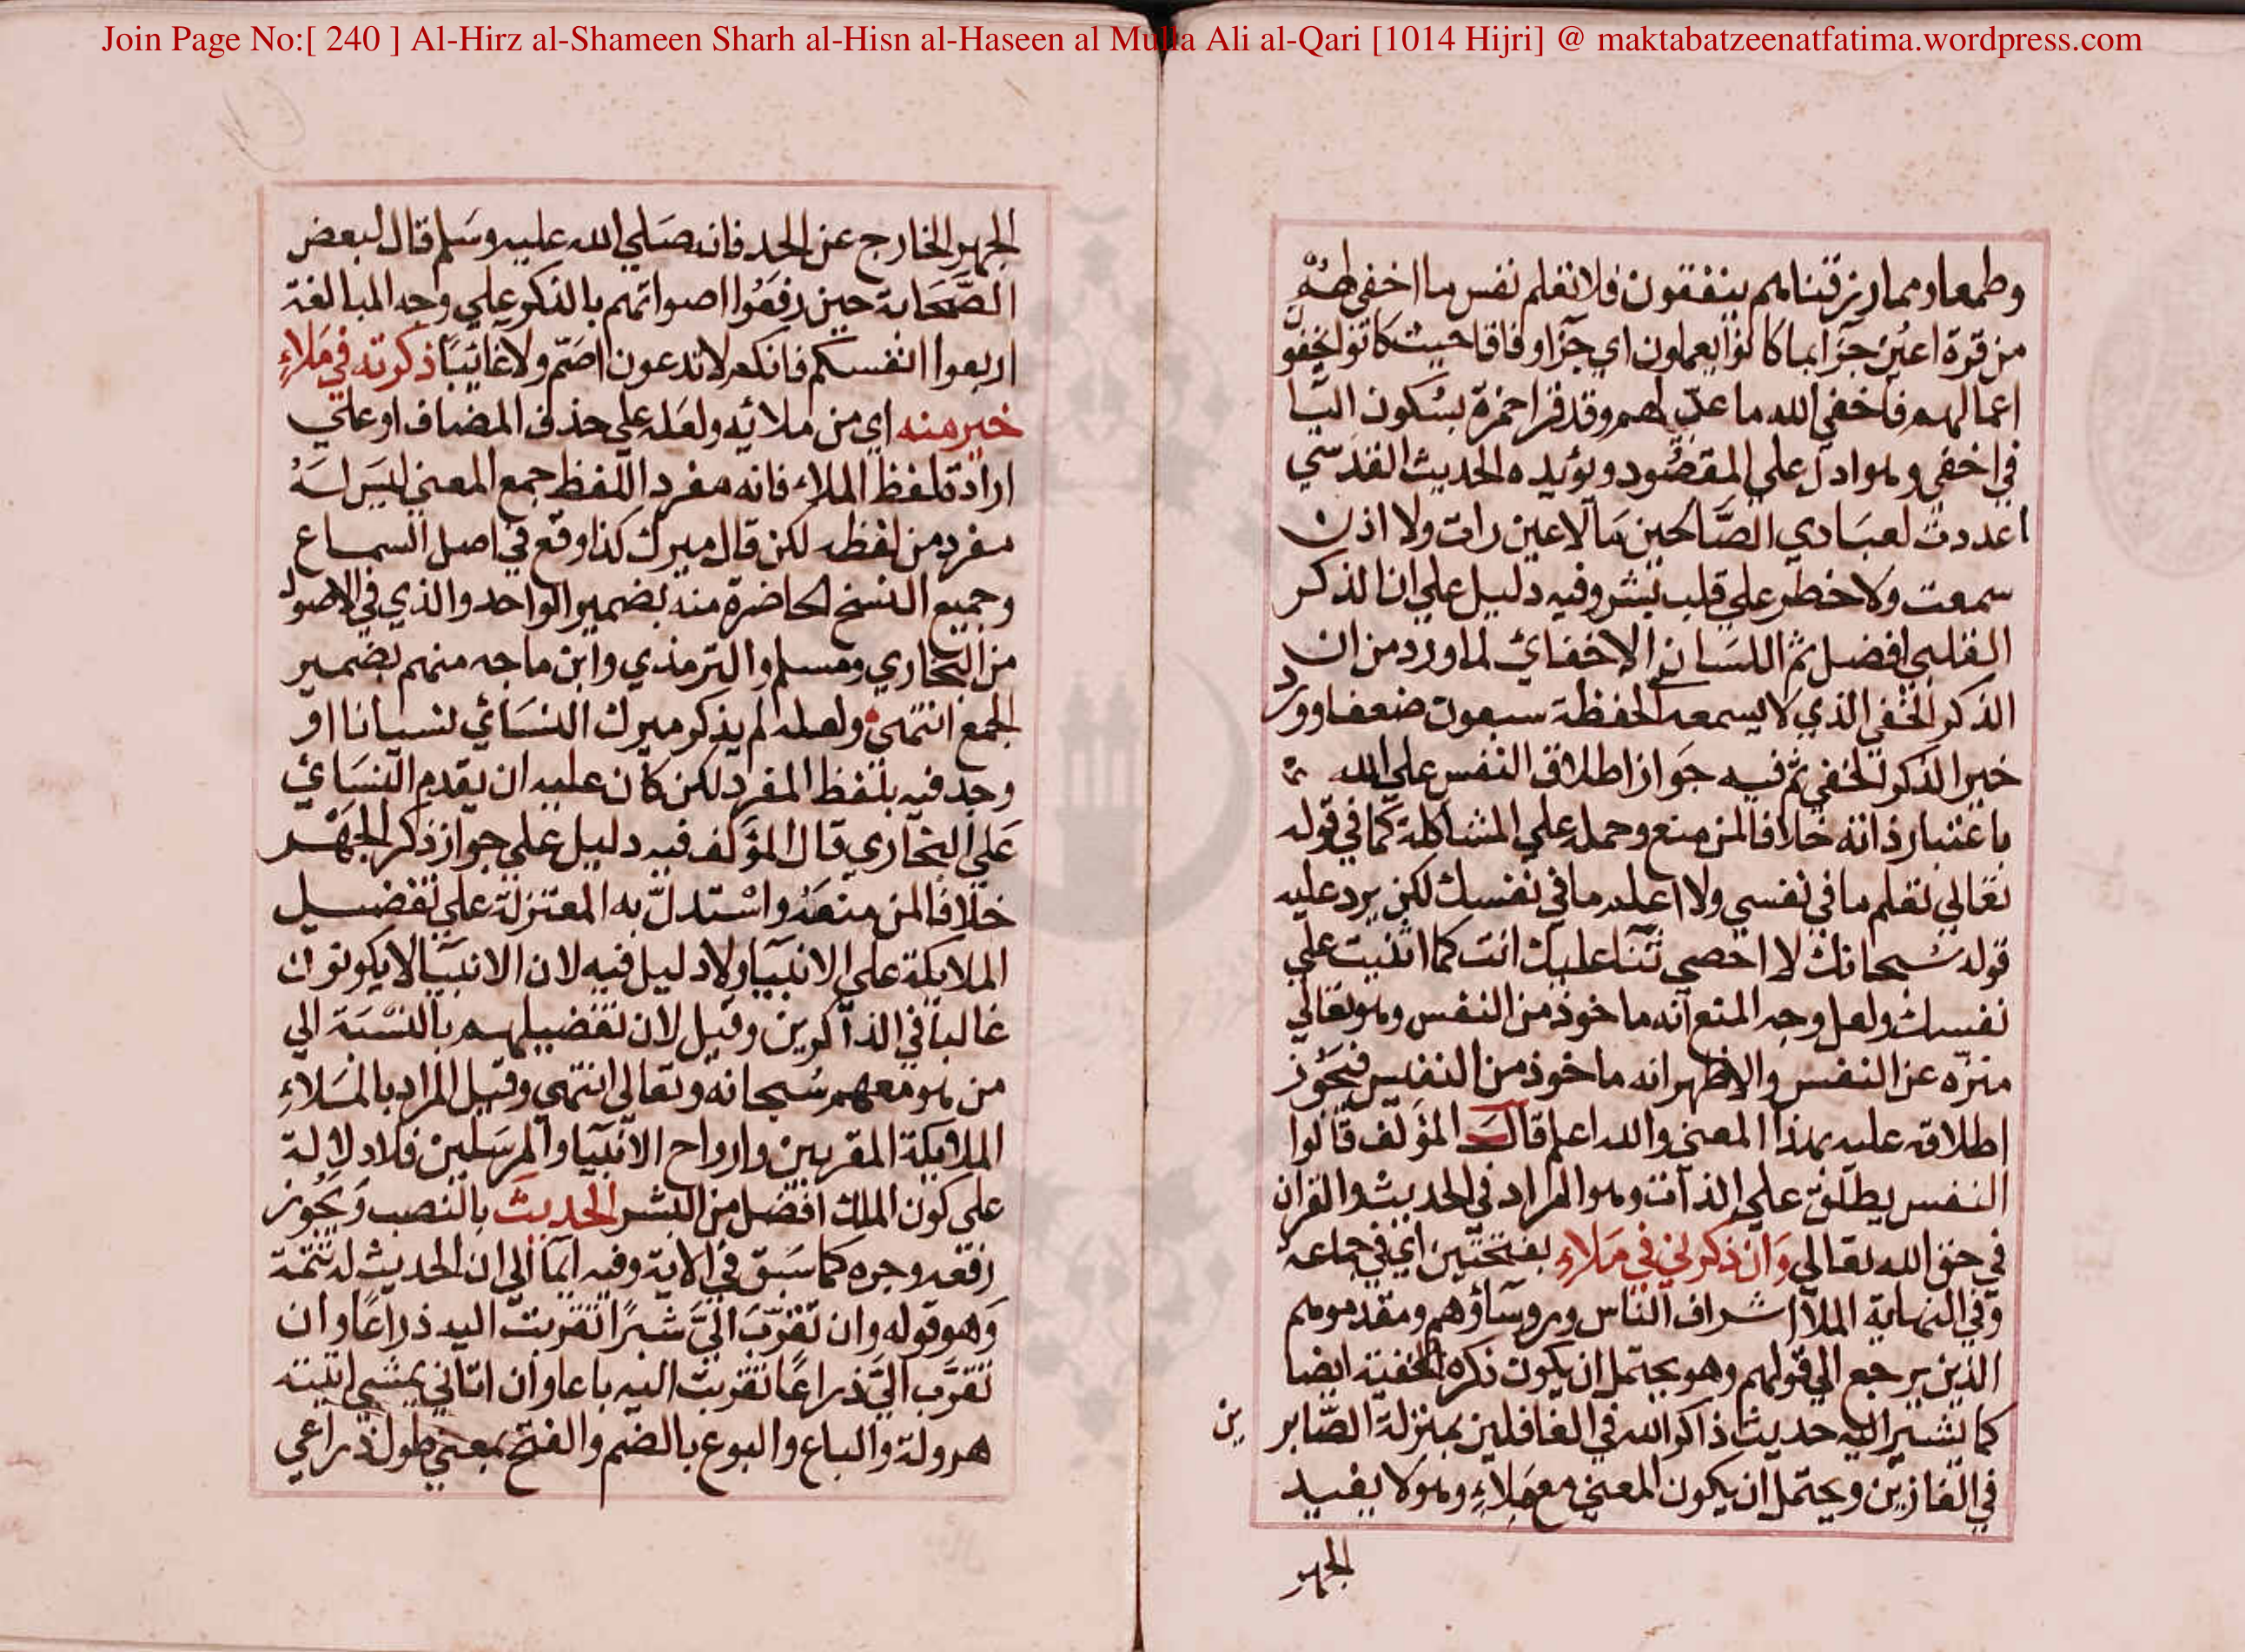 Join Page No:[ 240 ] Al-Hirz al-Shameen Sharh al-Hisn al-Haseen al Mulla Ali al-Qari [1014 Hijri] @ maktabatzeenatfatima.wordpress.com
وطمعا ومما رزقناهم ينفقون فلا تعلم نفس ما اخفي لهم
من قرة اعين جزا بما كانوا يعملون اي جزا وفاقا حيث كانوا يخفون
اعمالهم فاخفي الله ما عد لهم وقد قرا حمزة بسكون اليا
في اخفي وهو ادل علي المقصود ويؤيده الحديث القدسي
اعددت لعبادي الصالحين ما لا عين رات ولا اذن
سمعت ولا خطر علي قلب بشر وفيه دليل علي ان الذكر
القلبي افضل ثم اللسان الاخفائي لما ورد من ان
الذكر الخفي الذي لا يسمعه الحفظة سبعون ضعفا وورد
خير الذكر الخفي ثم فيه جواز اطلاق النفس علي الله
باعتبار ذاته خلافا لمن منع وحمله علي المشاكلة كما في قوله
تعالي تعلم ما في نفسي ولا اعلم ما في نفسك لكن يرد عليه
قوله سبحانك لا احصي ثنا عليك انت كما اثنيت علي
نفسك ولعل وجه المنع انه ماخوذ من النفس وهو تعالي
منزه عن النفس والاظهر انه ماخوذ من النفيس فيجوز
اطلاقه عليه بهذا المعني والله اعلم قال المؤلف قالوا
النفس يطلق علي الذات وهو المراد في الحديث والقران
في حق الله تعالي وان ذكرني في ملاء بفتحتين اي في جماعة
وفي النهاية الملا اشراف الناس وروساؤهم ومقدموهم
الذين يرجع الي قولهم وهو يحتمل ان يكون ذكره الخفية ايضا
كما يشير اليه حديث ذاكر الله في الغافلين بمنزلة الصابر
ين
في الفازين ويحتمل ان يكون المعني مع ملاء وهو لا يفيد
الجهر
الجهر الخارج عن الحد فانه صلي الله عليه وسلم قال لبعض
الصحابة حين رفعوا اصواتهم بالذكر علي وجه المبالغة
اربعوا انفسكم فانكم لا تدعون اصم ولا غائبا ذكرته في ملاء
خير منه اي من ملائه ولعله علي حذف المضاف او علي
ارادة لفظ الملاء فانه مفرد اللفظ جمع المعني ليس له
مفرد من لفظه لكن قال ميرك كذا وقع في اصل السماع
وجميع النسخ الحاضرة منه بضمير الواحد والذي في الاصول
من البخاري ومسلم والترمذي وابن ماجه منهم بضمير
الجمع انتهي ولعله لم يذكر ميرك النسائي نسيانا او
وجد فيه بلفظ المفرد لكن كان عليه ان يقدم النسائي
علي البخاري قال المؤلف فيه دليل علي جواز ذكر الجهر
خلافا لمن منعه واستدل به المعتزلة علي تفضيل
الملايكة علي الانبيا ولا دليل فيه لان الانبيا لا يكونون
غالبا في الذاكرين وقيل لان تفضيلهم بالنسبة الي
من هو معهم سبحانه وتعالي انتهي وقيل المراد بالملاء
الملايكة المقربين وارواح الانبيا والمرسلين فلا دلالة
علي كون الملك افضل من البشر الحديث بالنصب ويجوز
رفعه وجره كما سبق في الاية وفيه ايما الي ان الحديث له تتمة
وهو قوله وان تقرب الي شبرا تقربت اليه ذراعا وان
تقرب الي ذراعا تقربت اليه باعا وان اتاني يمشي اتيته
هرولة والباع والبوع بالضم والفتح بمعني طول ذراعي